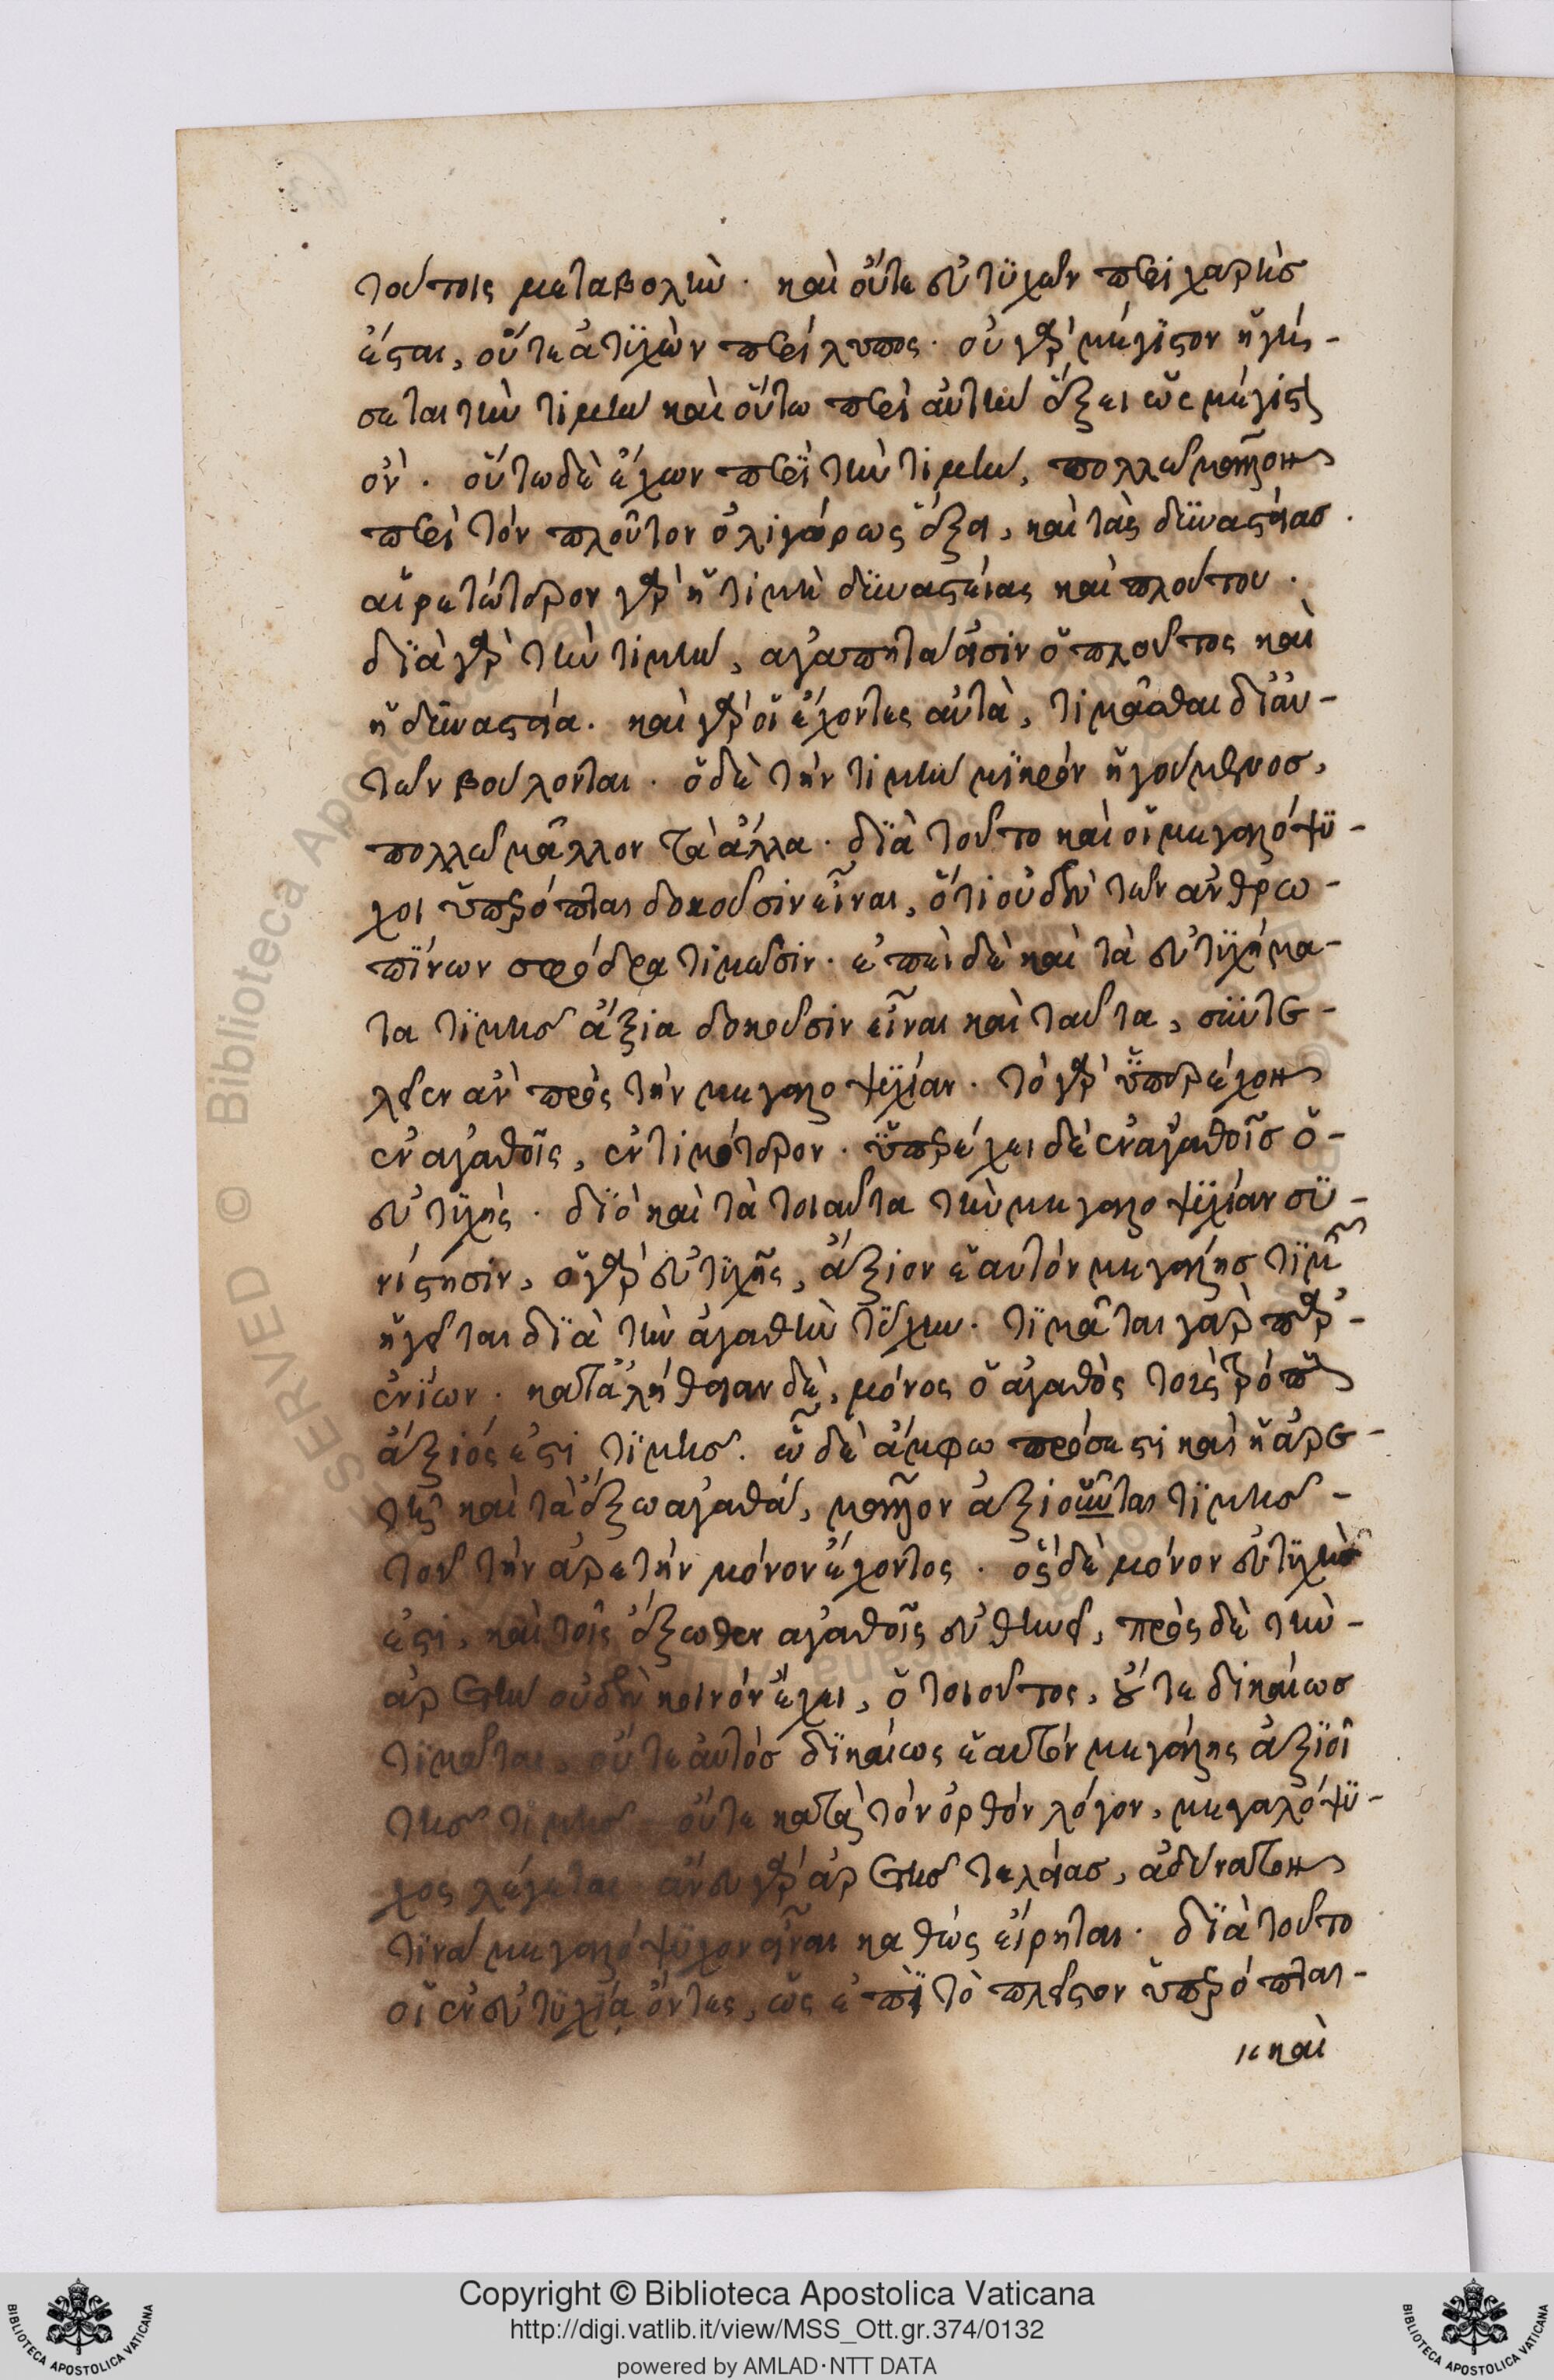 τούτοις μεταβολὴν. καὶ οὔτε εὐτυχῶν περιχαρὴς
ἔσται, οὔτε ἀτυχῶν περίλυπος. οὐ γὰρ μέγιστον ἡγή-
σεται τὴν τιμὴν καὶ οὕτω περὶ αὐτὴν ἕξει ὡς μέγιστον
ὄν. οὕτω δὲ ἔχων περὶ τὴν τιμὴν, πολλῶ μᾶλλον
περὶ τὸν πλοῦτον ὀλιγώρως ἕξει, καὶ τὰς δυναστείας.
αἱρετώτερον γὰρ ἡ τιμὴ δυναστείας καὶ πλούτου.
διὰ γὰρ τὴν τιμὴν, ἀγαπητὰ εἰσὶν ὁ πλοῦτος καὶ
ἡ δυναστεία. καὶ γὰρ οἱ ἔχοντες αὐτὰ, τιμᾶσθαι δι' αὐ-
τῶν βούλονται. ὁ δὲ τὴν τιμὴν μικρὸν ἡγούμενος,
πολλῶ μᾶλλον τὰ ἄλλα. διὰ τοῦτο καὶ οἱ μεγαλόψυ-
χοι ὑπερόπται δοκοῦσιν εἶναι, ὅτι οὐδὲν τῶν ἀνθρω-
πίνων σφόδρα τιμῶσιν. ἐπεὶ δὲ καὶ τὰ εὐτυχήμα-
τα τιμῆς ἄξια δοκοῦσιν εἶναι καὶ ταῦτα, συντε-
λεῖεν ἂν πρὸς τὴν μεγαλοψυχίαν. τὸ γὰρ ὑπερέχον
ἐν ἀγαθοῖς, ἐντιμότερον. ὑπερέχει δὲ ἐν ἀγαθοῖς ὁ-
εὐτυχής. διὸ καὶ τὰ τοιαῦτα τὴν μεγαλοψυχίαν συ-
νίστησιν, ὁ γὰρ εὐτυχὴς, ἄξιον ἑαυτὸν μεγάλης τιμῆς
ἡγεῖται διὰ τὴν ἀγαθὴν τύχην. τιμᾶται γὰρ παρ' -
ἐνίων. κατὰ ἀλήθειαν δὲ, μόνος ὁ ἀγαθὸς τοὺς τρόπους
ἄξιός ἐστι τιμῆς. ᾧ δὲ ἄμφω πρόσεστι καὶ ἡ ἀρε-
τὴ καὶ τὰ ἔξω ἀγαθά, μᾶλλον ἀξιοῦνται τιμῆς -
τοῦ τὴν ἀρετὴν μόνον ἔχοντος. ὃς δὲ μόνον εὐτυχὴς
ἐστι, καὶ τοῖς ἔξωθεν ἀγαθοῖς εὐθηνεῖ, πρὸς δὲ τὴν -
ἀρετὴν οὐδὲν κοινὸν ἔχει, ὁ τοιοῦτος, οὔτε δικαίως
τιμᾶται, οὔτε αὐτὸς δικαίως ἑαυτὸν μεγάλης ἀξιοῖ
τῆς τιμῆς οὔτε κατὰ τὸν ὀρθὸν λόγον, μεγαλόψυ-
χος λέγεται ἄνευ γὰρ ἀρετῆς τελείας, ἀδύνατον
τινὰ μεγαλόψυχον εἶναι καθὼς εἴρηται. διὰ τοῦτο
οἱ ἐν εὐτυχίᾳ ὄντες, ὡς ἐπὶ τὸ πλεῖστον ὑπερόπται -
καὶ
Copyright © Biblioteca Apostolica Vaticana
http://digi.vatlib.it/view/MSS_Ott.gr.374/0132
powered by AMLAD·NTT DATA